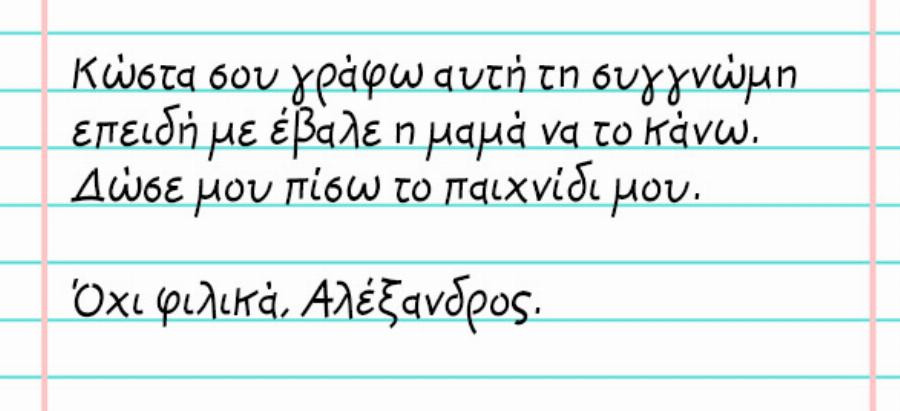 Κώστα σου γράφω αυτή τη συγγνώμη
επειδή με έβαλε η μαμά να το κάνω.
Δώσε μου πίσω το παιχνίδι μου.
Όχι φιλικά, Αλέξανδρος.